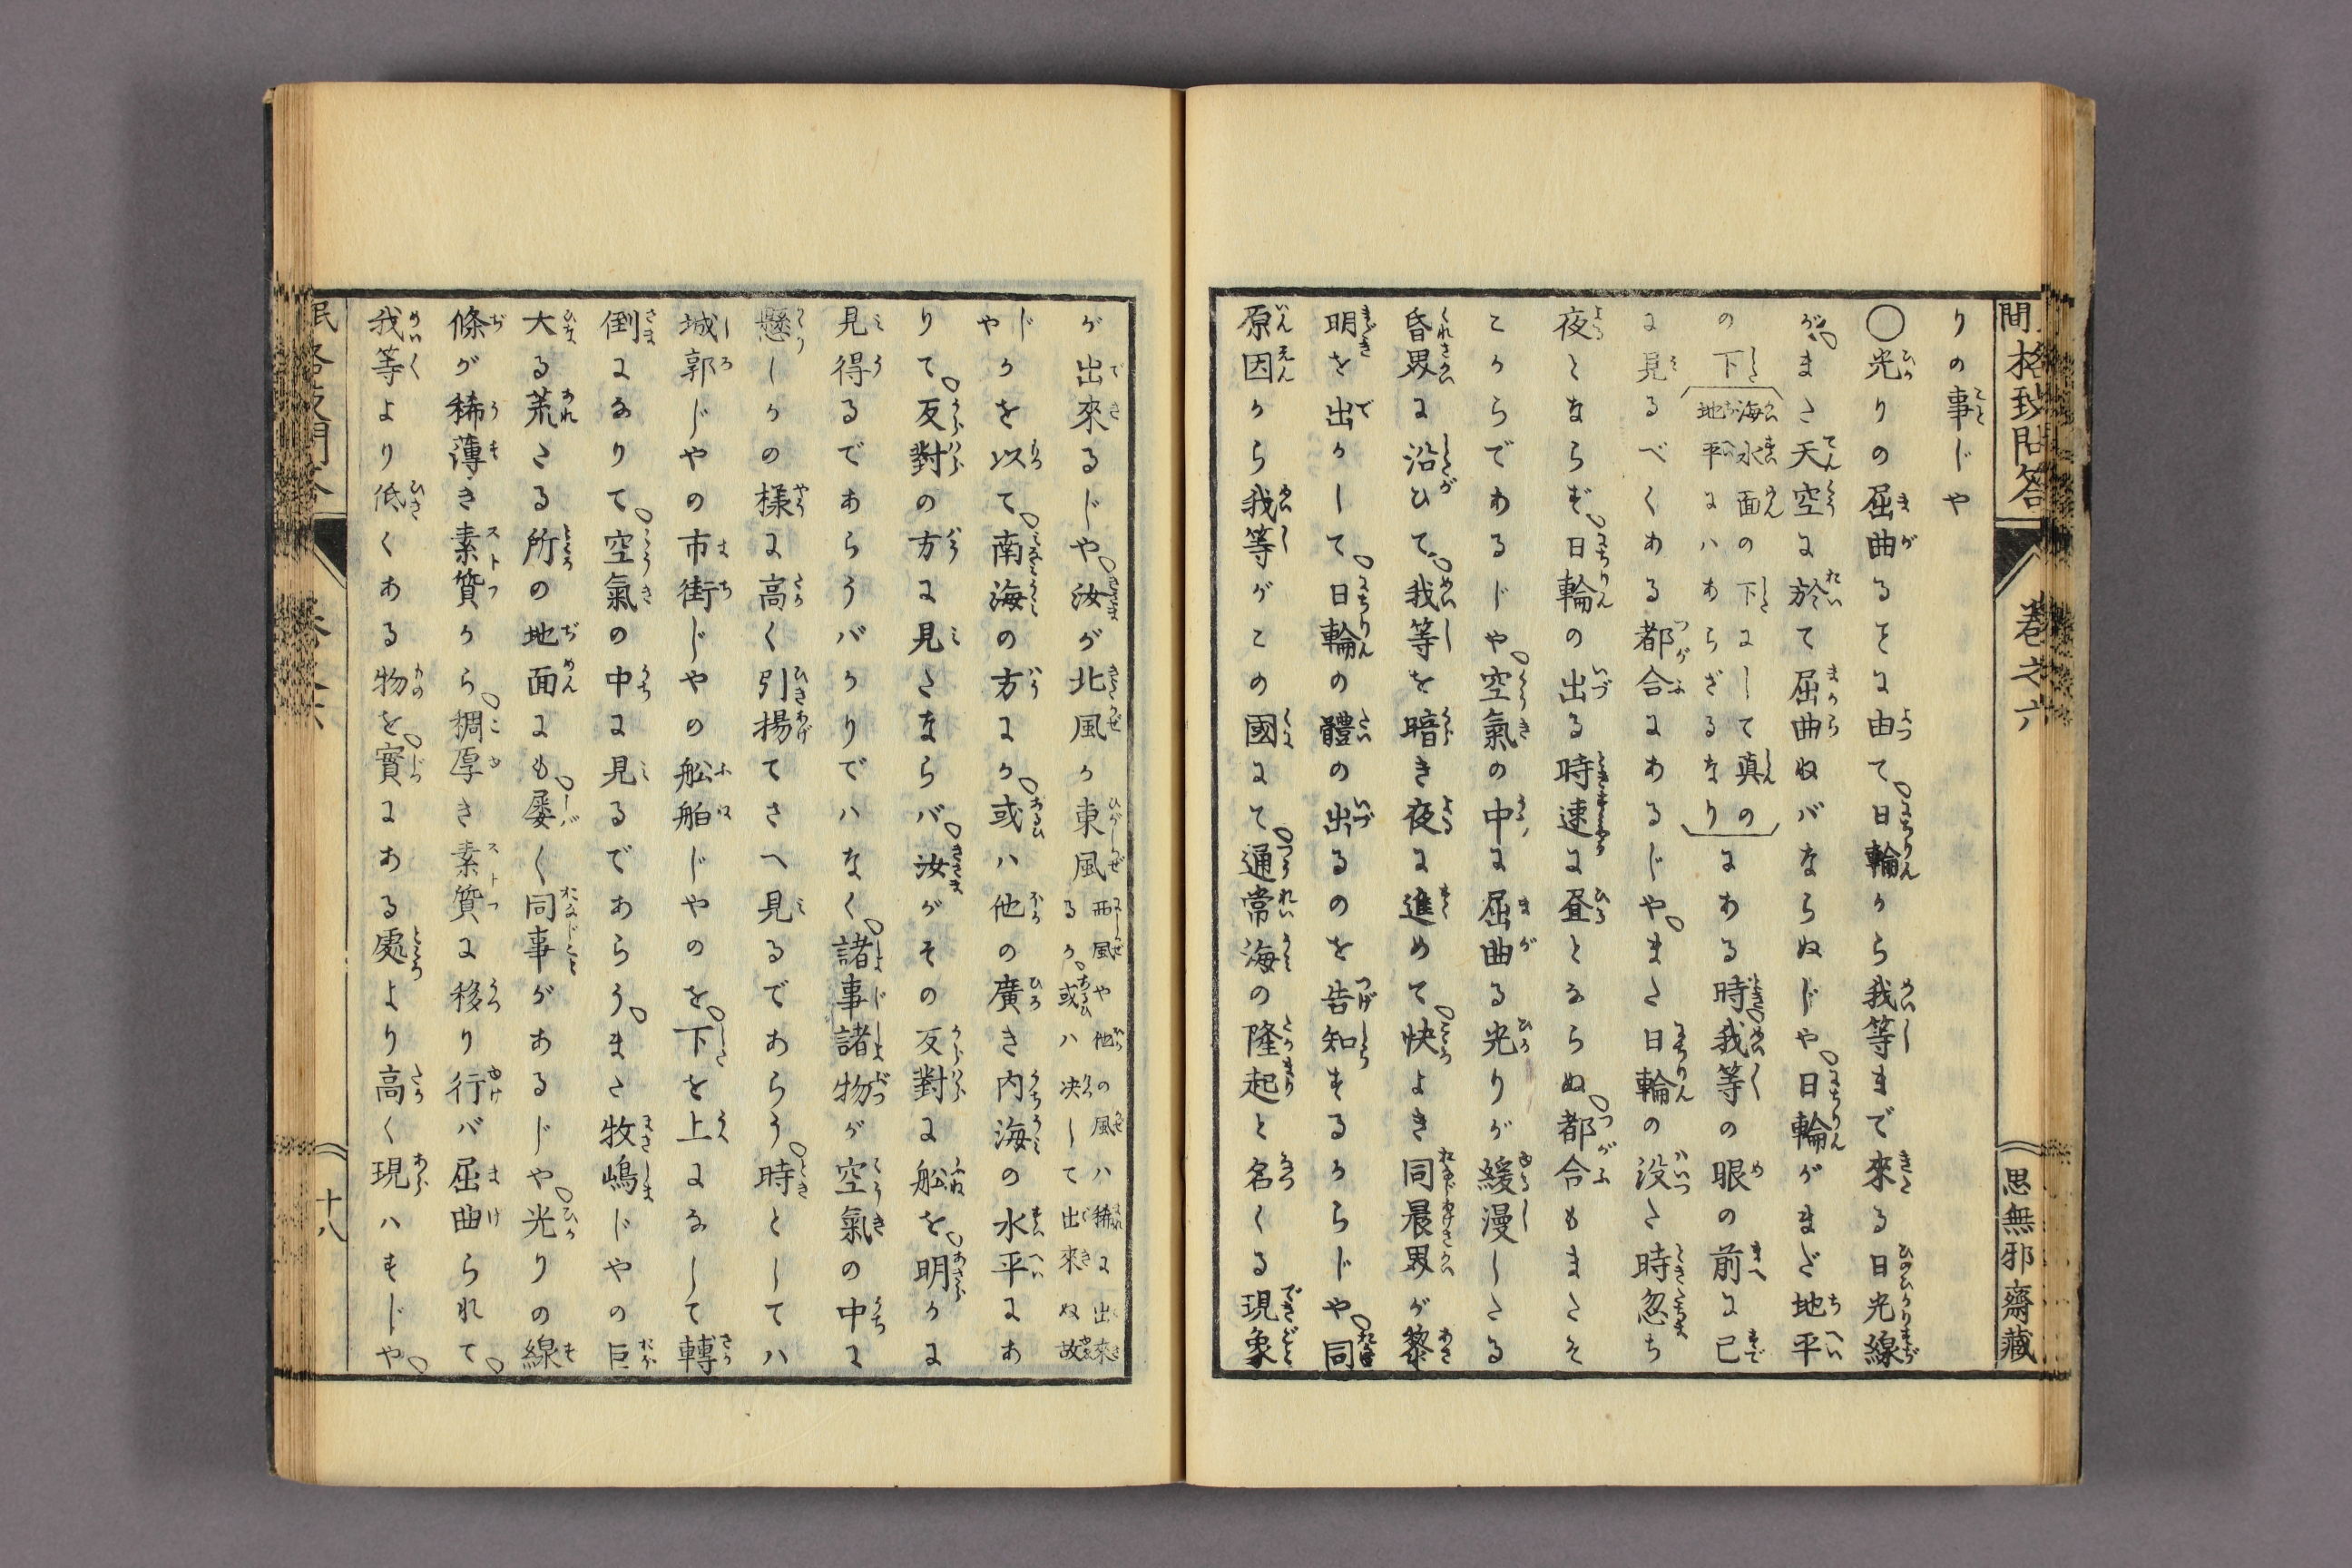 間格致問答 巻之六 思無邪齋藏
りの事じや
○光りの屈曲るをに由て、日輪から我等まで來る日光線
が、また天空に於て屈曲ねバならぬじや、日輪がまだ地平
の下(海水面の下にして真の
地平にハあらざるなり)にある時、我等の眼の前に已
に見るべくある都合にあるじや、また日輪の没た時忽ち
夜とならず、日輪の出る時速に昼とならぬ、都合もまたそ
こからでわるじや、空氣の中に屈曲る光りが緩漫したる
昏界に沿ひて、我等を暗き夜に進めて、快よき同晨界が黎
明を出かして、日輪の體の出るのを告知せるからじや、同
原因から我等がこの國にて、通常海の隆起と名くる現象
が出來るじや、汝が北風か東風西風や他の風ハ稀に出來
るか、或ハ决して出來ぬ故
じやかを以て、南海の方にか、或ハ他の廣き内海の水平にあ
りて、反對の方に見たならバ、汝がその反對に船を、明かに
見得るであらうバかりでハなく、諸事諸物が空氣の中に
懸しかの様に高く引揚てさへ見るであらう、時としてハ
城郭じやの市街じやの舩舶じやのを、下を上になして轉
倒になりて、空氣の中に見るであらう、また牧嶋じやの巨
大る荒たる所の地面にも、屡く同事があるじや、光りの線
條が稀薄き素質から、稠厚き素質に移り行バ屈曲られて、
我等より低くある物を、實にある處より高く現ハすじや、
十八